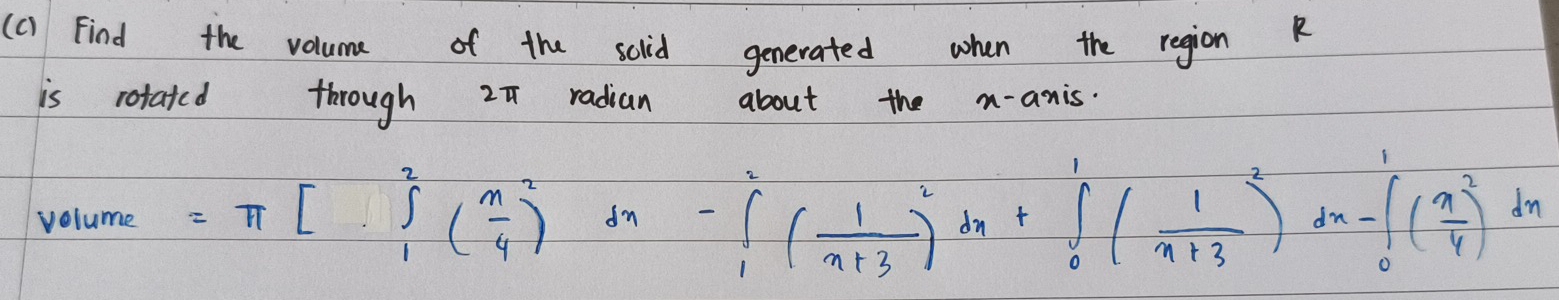 (c) Find the volume of the solid generated when the region R
is rotated through 2π radian about the x-axis.
volume = π [ ∫₁² (x/4)² dx - ∫₁² (1/(x+3))² dx + ∫₀¹ (1/(x+3))² dx - ∫₀¹ (x/4)² dx